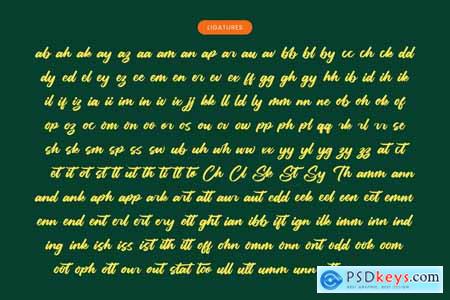 LIGATURES
ab ah ak ay az aa am an ap ar au av bb bl by cc ch ck dd
dy ed el ey ez ee em en er ev ex ff gg gh gy hh ib id ih ik
il if iz ia ii im in iv ix jj kk ll ld ly mm nn ne ob oh ok of
op oz oc om on oo or os ou ov ow pp ph pl qq rk rl rr se
sh sk sm sp ss sw ub uh wh ww xx yy yl yg zy zz at ct
et it ot st tt ut th ti tl to Ch Cl Sk St Sy Th amm ann
and ank aph app ark art att awr aut edd eek eel een eet emm
enn end ent erl ert ery ett ght ian ibb ift ign ilk imm inn ind
ing ink ish iss ist ith itt off ohn omm onn ont odd ook oom
oot oph ott owr out stat too ull ult umm unn
PSDkeys.com